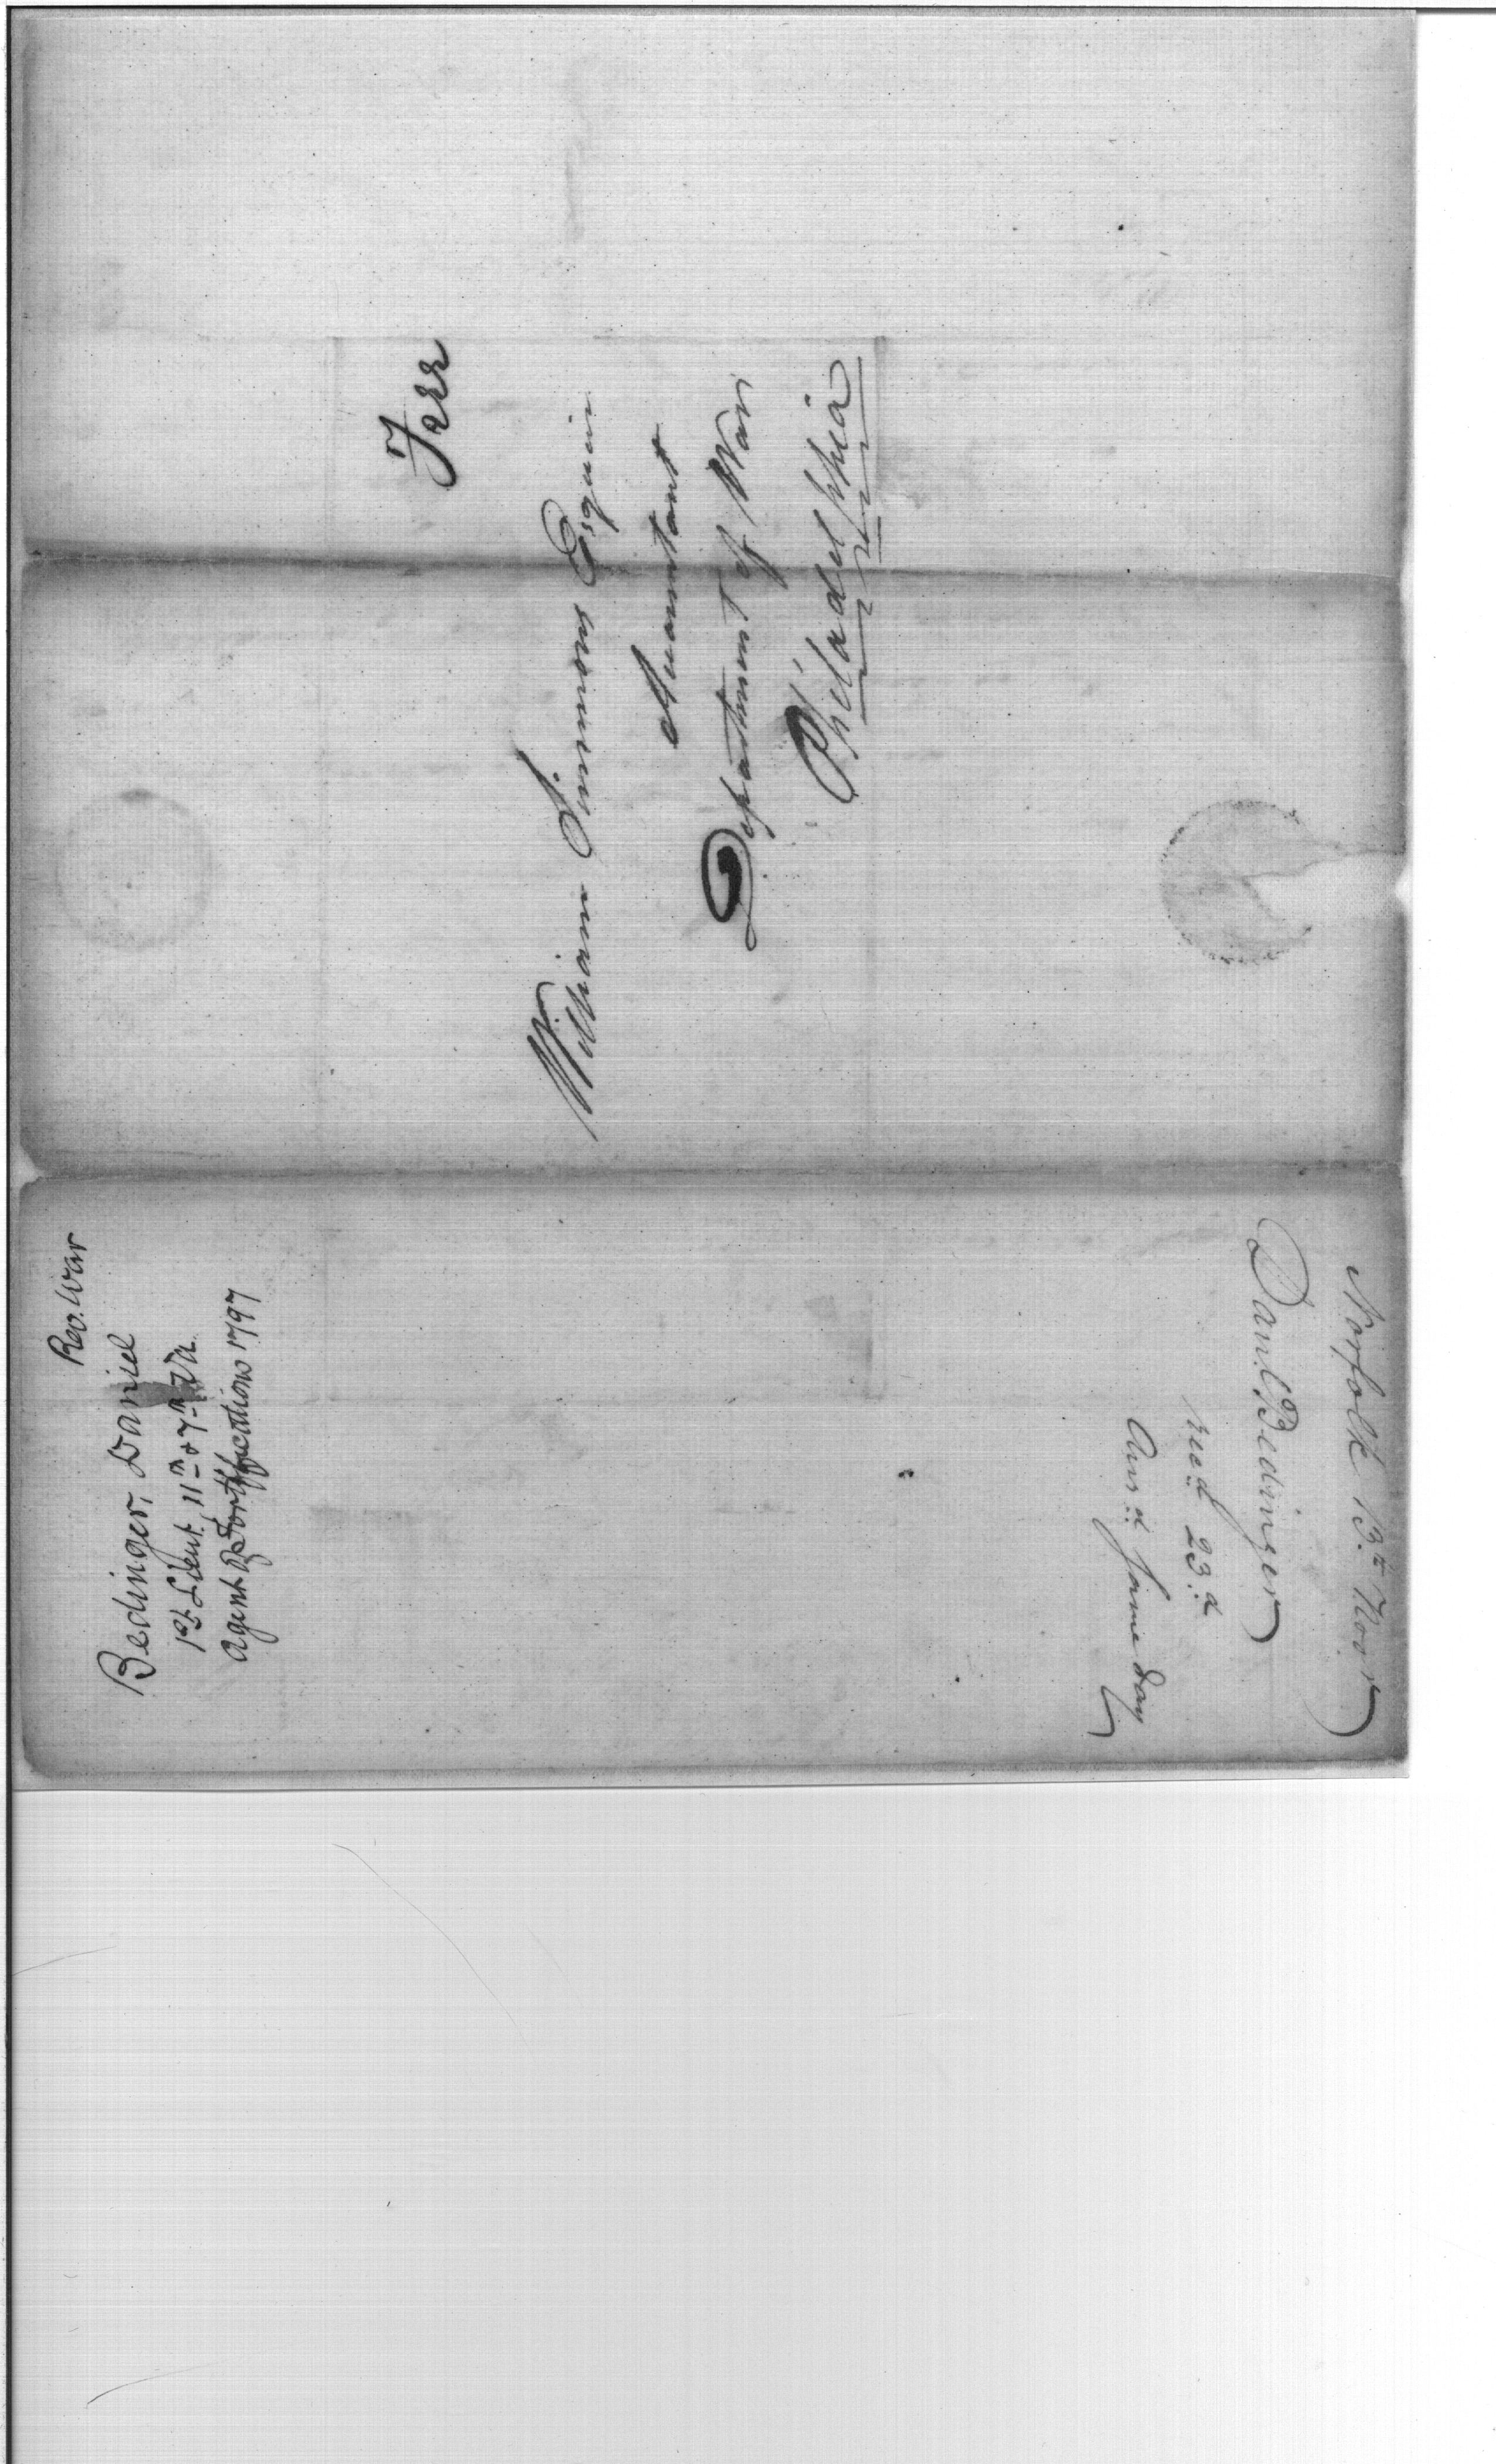 Free
William Simmons Esquire
Accountant
Department of War
Philadelphia
Rev. War
Bedinger, Daniel
1st Lieut. 11th & 7th Va
Agent of Fortifications 1797
Norfolk 13th Novr
Danl Bedinger
recd 23d
Ansd same day